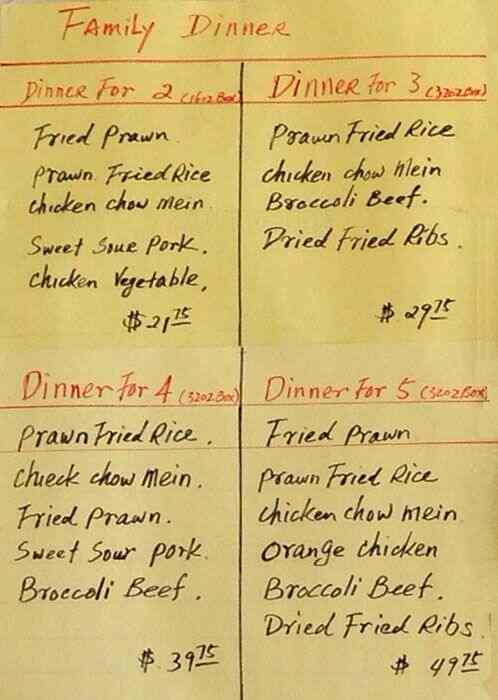 Family Dinner
Dinner For 2 (16oz Box)
Fried Prawn
Prawn Fried Rice
Chicken chow mein.
Sweet Soue Pork.
Chicken Vegetable,
$21.75
Dinner For 3 (32oz Box)
Prawn Fried Rice
chicken chow mein
Broccoli Beef.
Dried Fried Ribs.
$29.75
Dinner For 4 (32oz Box)
Prawn Fried Rice.
Chieck chow mein.
Fried Prawn.
Sweet Sour pork.
Broccoli Beef.
$39.75
Dinner For 5 (32oz Box)
Fried Prawn
Prawn Fried Rice
Chicken chow mein
Orange Chicken
Broccoli Beef.
Dried Fried Ribs.
$49.75